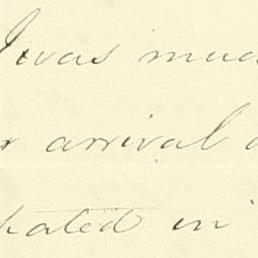 I was muc
r arrival a
pated in